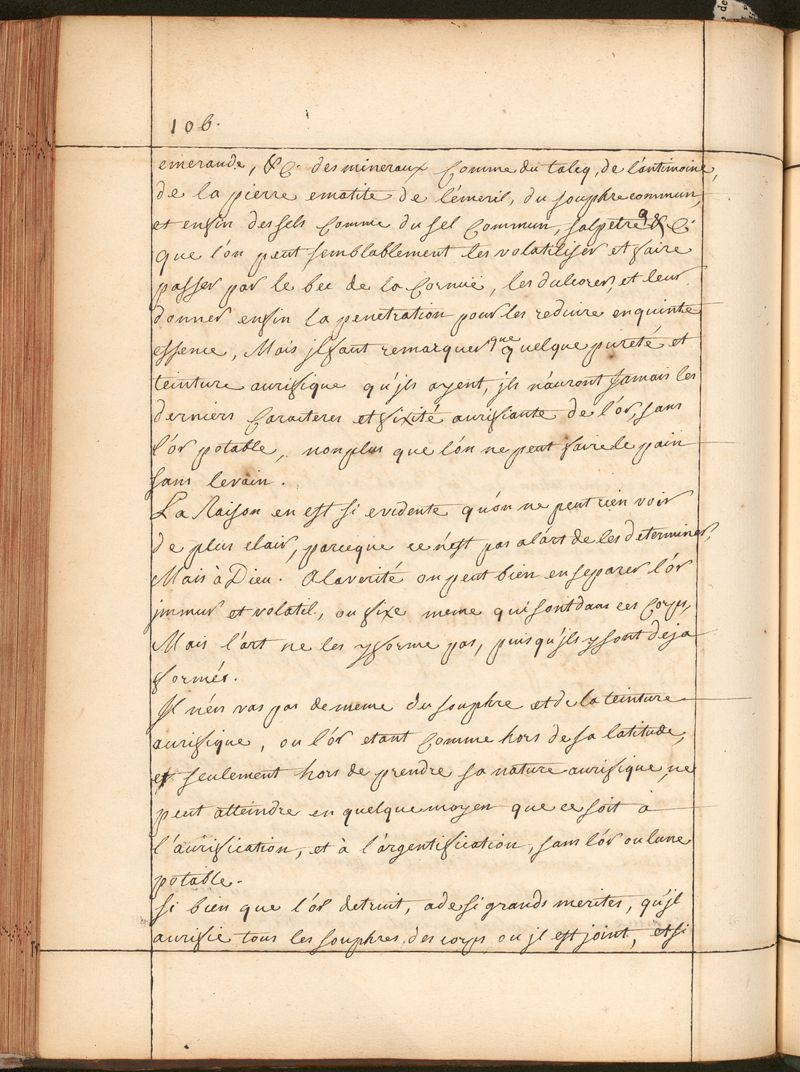 106.
emeraude, &c. des mineraux Comme du talcq, de l'antimoine,
de la pierre ematite de l'émeril, du souphre commun,
et enfin des sels Comme du sel Commun, salpetre &c.
que l'ón peut semblablement les volatiliser et faire
passer par le bec de la Cornuë, les dulcorer, et leur
donner enfin la penetration pour les reduire en quinte
essence, Mais jl faut remarquer que quelque pureté et
teinture aurifique qu'jls ayent, jls n'auront Jamais les
derniers Caracteres et fixité aurifiante de l'or, sans
l'or potable, non plus que l'ón ne peut faire le pain
sans levain.
La Raison en est si evidente qu'on ne peut rien voir
de plus clair, parceque ce n'est pas a l'árt de les determiner,
Mais à Dieu. A la verité on peut bien en separer l'ór
jmmur et volatil, ou fixe meme qui sont dans ces Corps,
Mais l'art ne les y forme pas, puis qu'jls y sont deja
formés.
Jl n'en vas pas de meme du souphre et de la teinture
aurifique, ou l'ór etant Comme hors de sa latitude,
et seulement hors de prendre sa nature aurifique, ne
peut atteindre en quelque moyen que ce soit à
l'aurification, et à l'argentification, sans l'ór ou lune
potable.
Si bien que l'ór detruit, a de si grands merites, qu'jl
aurifie tous les souphres des corps ou jl est joint, et si